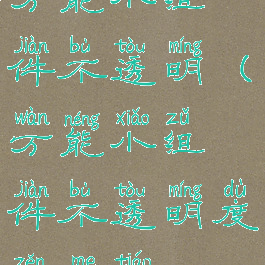 万能小组
jiàn bù tòu míng
件不透明（
wàn néng xiǎo zǔ
万能小组
jiàn bù tòu míng dù
件不透明度
zěn me tiáo